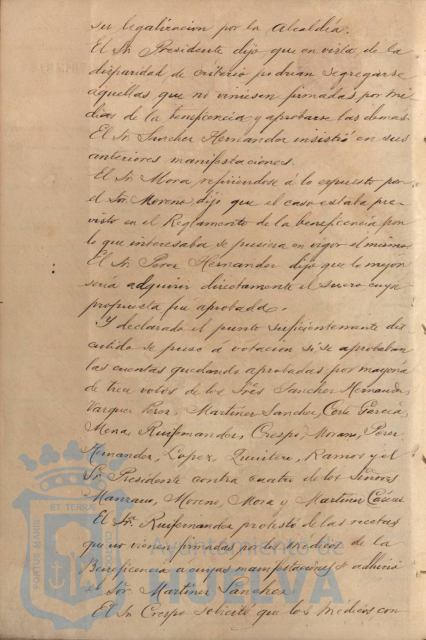 su legalizacion por la Alcaldía.
El Sr. Presidente dijo que en vista de la
disparidad de criterio podrian segregarse
aquellas que no viniesen firmadas por mé
dicos de la beneficencia y aprobarse las demas.
El Sr. Sanchez Hernandez insistió en sus
anteriores manifestaciones.
El Sr. Mora, refiriendose á lo expuesto por
el Sr. Moreno, dijo que el caso estaba pre
visto en el Reglamento de la beneficencia por
lo que interesaba se pusiera en vigor el mismo.
El Sr. Perez Hernandez dijo que lo mejor
seria adquirir directamente el suero cuya
propuesta fué aprobada.
Y declarado el punto suficientemente dis
cutido se puso á votacion si se aprobaban
las cuentas quedando aprobadas por mayoria
de trece votos de los Sres Sanchez Hernandez
Vazquez Martinez Sanchez, García,
Mena, Ruifernandez, Crespo, Morano, Perez
Hernandez, Lopez, Quintero, Ramos y el
Sr. Presidente contra cuatro de los Señores
Manzano, Moreno, Mora y Martinez
El Sr. Ruifernandez protestó de las recetas
que no vienen firmadas por los Medicos de la
Beneficencia a cuyas manifestaciones se adhirió
el Sor. Martinez Sanchez
El Sr. Crespo solicitó que los medicos con
PORTUS MARIS
ET TERRAE
Ayuntamiento de
HUELVA